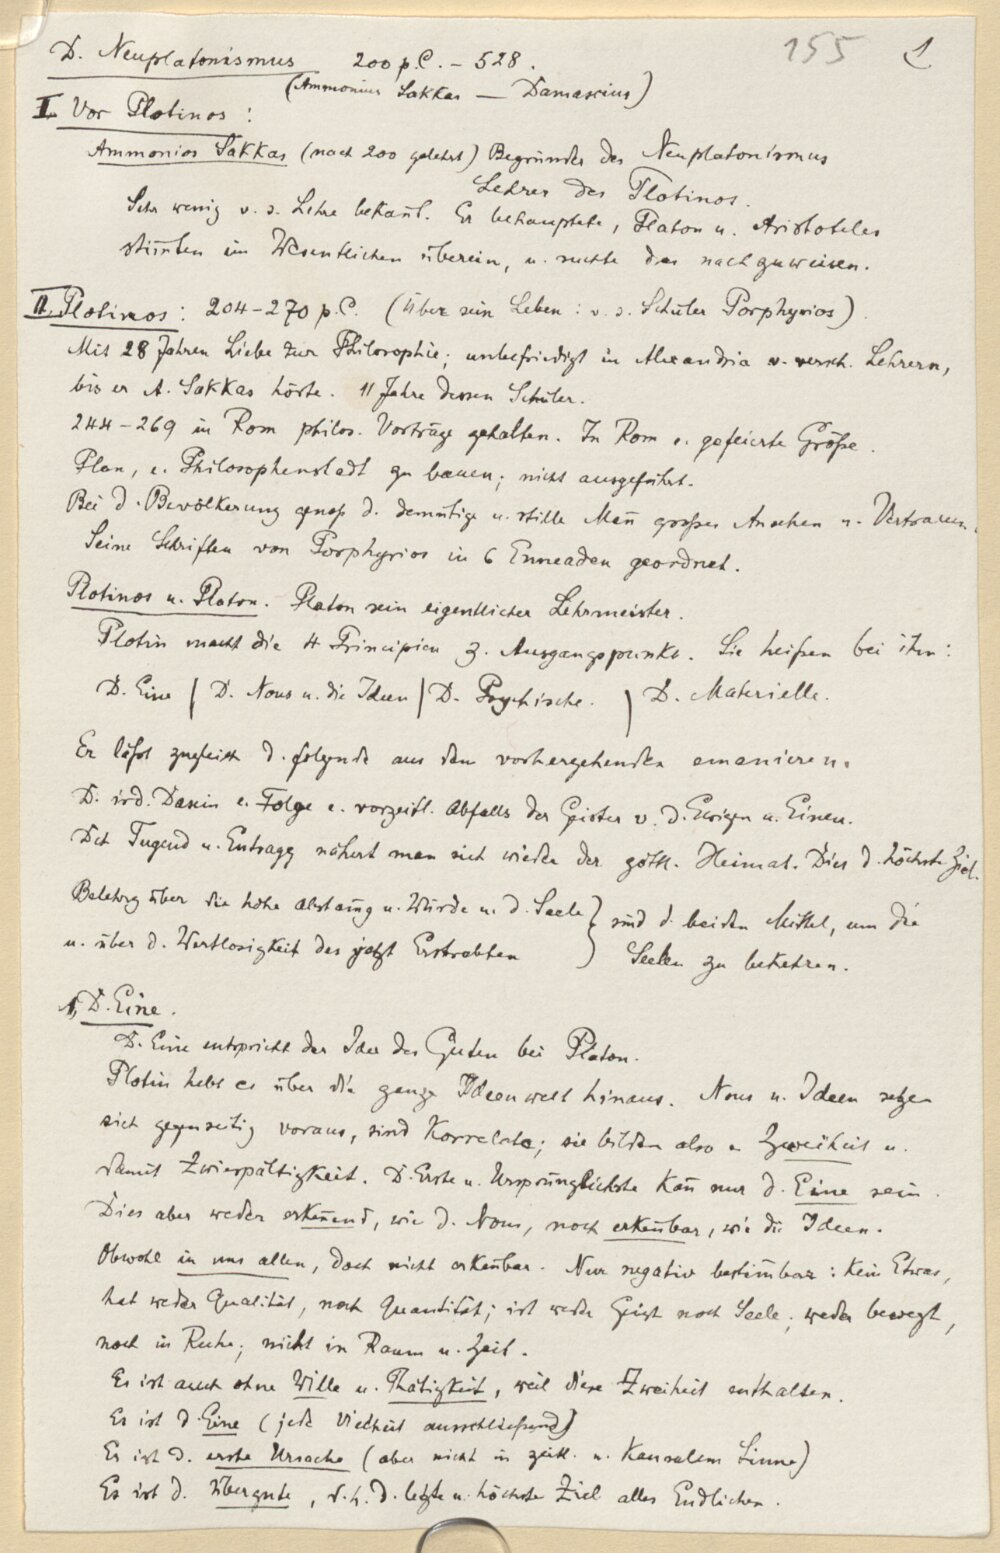 D. Neuplatonismus 200 p. C. – 528. 155 1
(Ammonius Sakkas – Damascius)
I. Vor Plotinos:
Ammonios Sakkas (nach 200 gelehrt) Begründer des Neuplatonismus
Lehrer des Plotinos.
Sehr wenig v. s. Lehre bekañt. Er behauptete, Platon u. Aristoteles
stim̄ten im Wesentlichen überein, u. suchte das nachzuweisen.
II. Plotinos: 204–270 p. C. (Über sein Leben: v. s. Schüler Porphyrios)
Mit 28 Jahren Liebe zur Philosophie; unbefriedigt in Alexandria v. versch. Lehrern,
bis er A. Sakkas hörte. 11 Jahre dessen Schüler.
244–269 in Rom philos. Vorträge gehalten. In Rom e. gefeierte Größe.
Plan, e. Philosophenstadt zu bauen; nicht ausgeführt.
Bei d. Bevölkerung genoß d. demütige u. stille Mañ großes Ansehen u. Vertrauen.
Seine Schriften von Porphyrios in 6 Enneaden geordnet.
Plotinos u. Platon. Platon sein eigentlicher Lehrmeister.
Plotin macht die 4 Principien z. Ausgangspunkt. Sie heißen bei ihm:
D. Eine | D. Nous u. die Ideen | D. Psychische. | D. Materielle.
Er läßt zugleich d. folgende aus dem vorhergehenden emanieren.
D. ird. Dasein e. Folge e. vorzeitl. Abfalls der Geister v. d. Ewigen u. Einen.
Dch Tugend u. Entsagg nähert man sich wieder der göttl. Heimat. Dies d. höchste Ziel.
Belehrg über die hohe Abstam̄g u. Würde u. d. Seele } sind d. beiden Mittel, um die
u. über d. Wertlosigkeit des jetzt Erstrebten } Seelen zu bekehren.
1, D. Eine.
D. Eine entspricht der Idee des Guten bei Platon.
Plotin hebt es über die ganze Ideenwelt hinaus. Nous u. Ideen setzen
sich gegenseitig voraus, sind Korrelate; sie bilden also e. Zweiheit u.
damit Zwiespältigkeit. D. Erste u. Ursprünglichste kañ nur d. Eine sein.
Dies aber weder erkeñend, wie d. Nous, noch erkeñbar, wie die Ideen.
Obwohl in uns allen, doch nicht erkeñbar. Nur negativ bestim̄bar: Kein Etwas,
hat weder Qualität, noch Quantität; ist weder Geist noch Seele; weder bewegt,
noch in Ruhe; nicht in Raum u. Zeit.
Es ist auch ohne Wille u. Thätigkeit, weil diese Zweiheit enthalten.
Es ist d. Eine (jede Vielheit ausschließend)
Es ist d. erste Ursache (aber nicht in zeitl. u. kausalem Sinne)
Es ist d. Übergute, d. h. d. letzte u. höchste Ziel alles Endlichen.